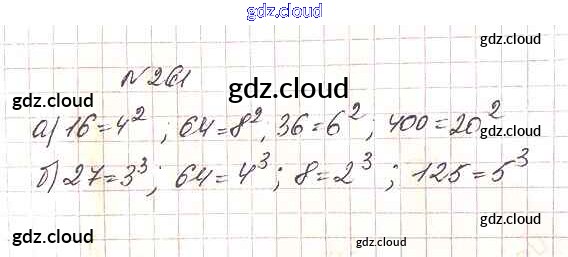 gdz.cloud
gdz.cloud
№ 261
gdz.cloud
gdz.cloud gdz.cloud
а) 16=4²; 64=8²; 36=6²; 400=20²
gdz.cloud
б) 27=3³; 64=4³; 8=2³; 125=5³
gdz.cloud
gdz.cloud
gdz.cloud
gdz.cloud